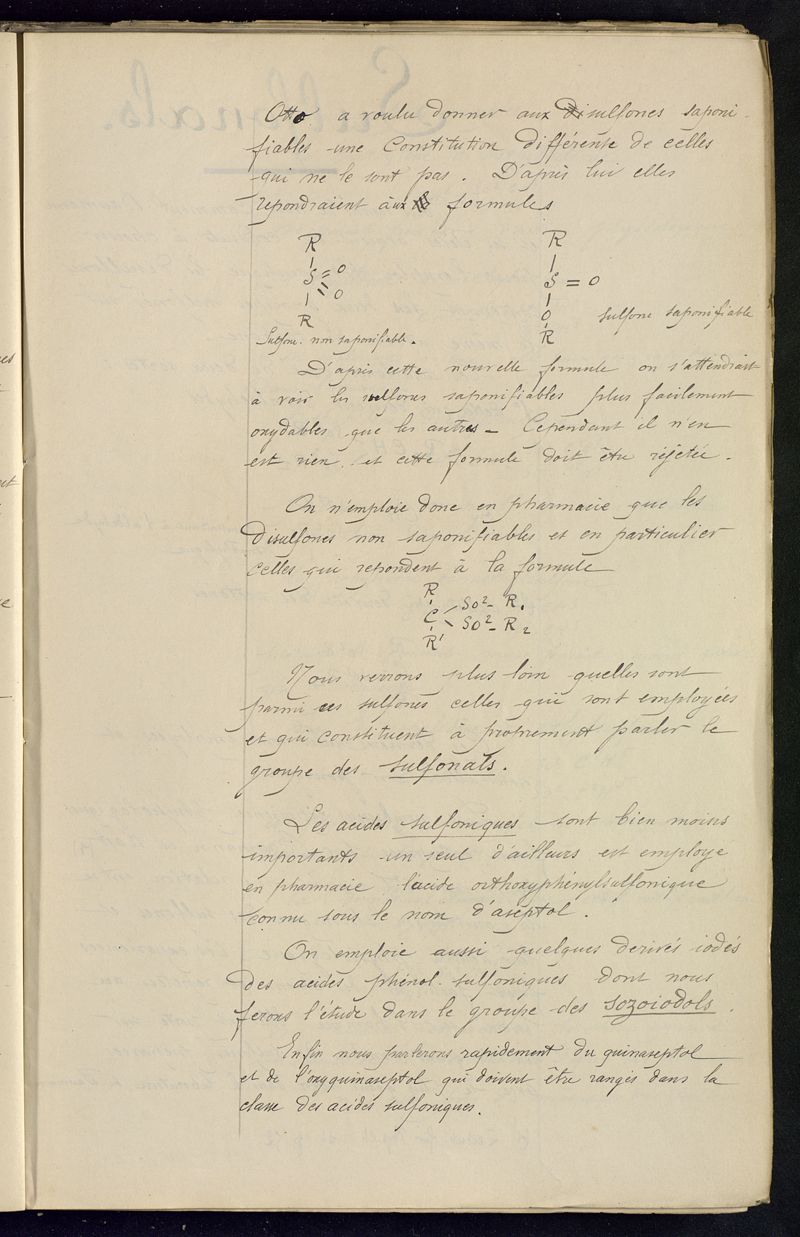 Otto a voulu donner aux disulfones saponi-
fiables une Constitution différente de celles
qui ne le sont pas. D'après lui elles
repondraient aux formules
R
S = O
= O
R
Sulfone non saponifiable.
R
S = O
O
R
sulfone saponifiable
D'après cette nouvelle formule on s'attendrait
à voir les sulfones saponifiables plus facilement
oxydables que les autres - Cependant il n'en
est rien et cette formule doit être rejetée.
On n'emploie donc en pharmacie que les
Disulfones non saponifiables et en particulier
celles qui repondent à la formule
R
C
R'
SO² - R1
SO² - R2
Nous verrons plus loin quelles sont
parmi ces sulfones celles qui sont employées
et qui constituent à proprement parler le
groupe des sulfonals.
Les acides sulfoniques sont bien moins
importants un seul d'ailleurs est employé
en pharmacie l'acide orthoxyphénylsulfonique
connu sous le nom d'aseptol.
On emploie aussi quelques derivés iodés
des acides phénol-sulfoniques dont nous
ferons l'étude dans le groupe des sozoiodols.
Enfin nous parlerons rapidement du quinaseptol
et de l'oxyquinaseptol qui doivent être rangés dans la
classe des acides sulfoniques.